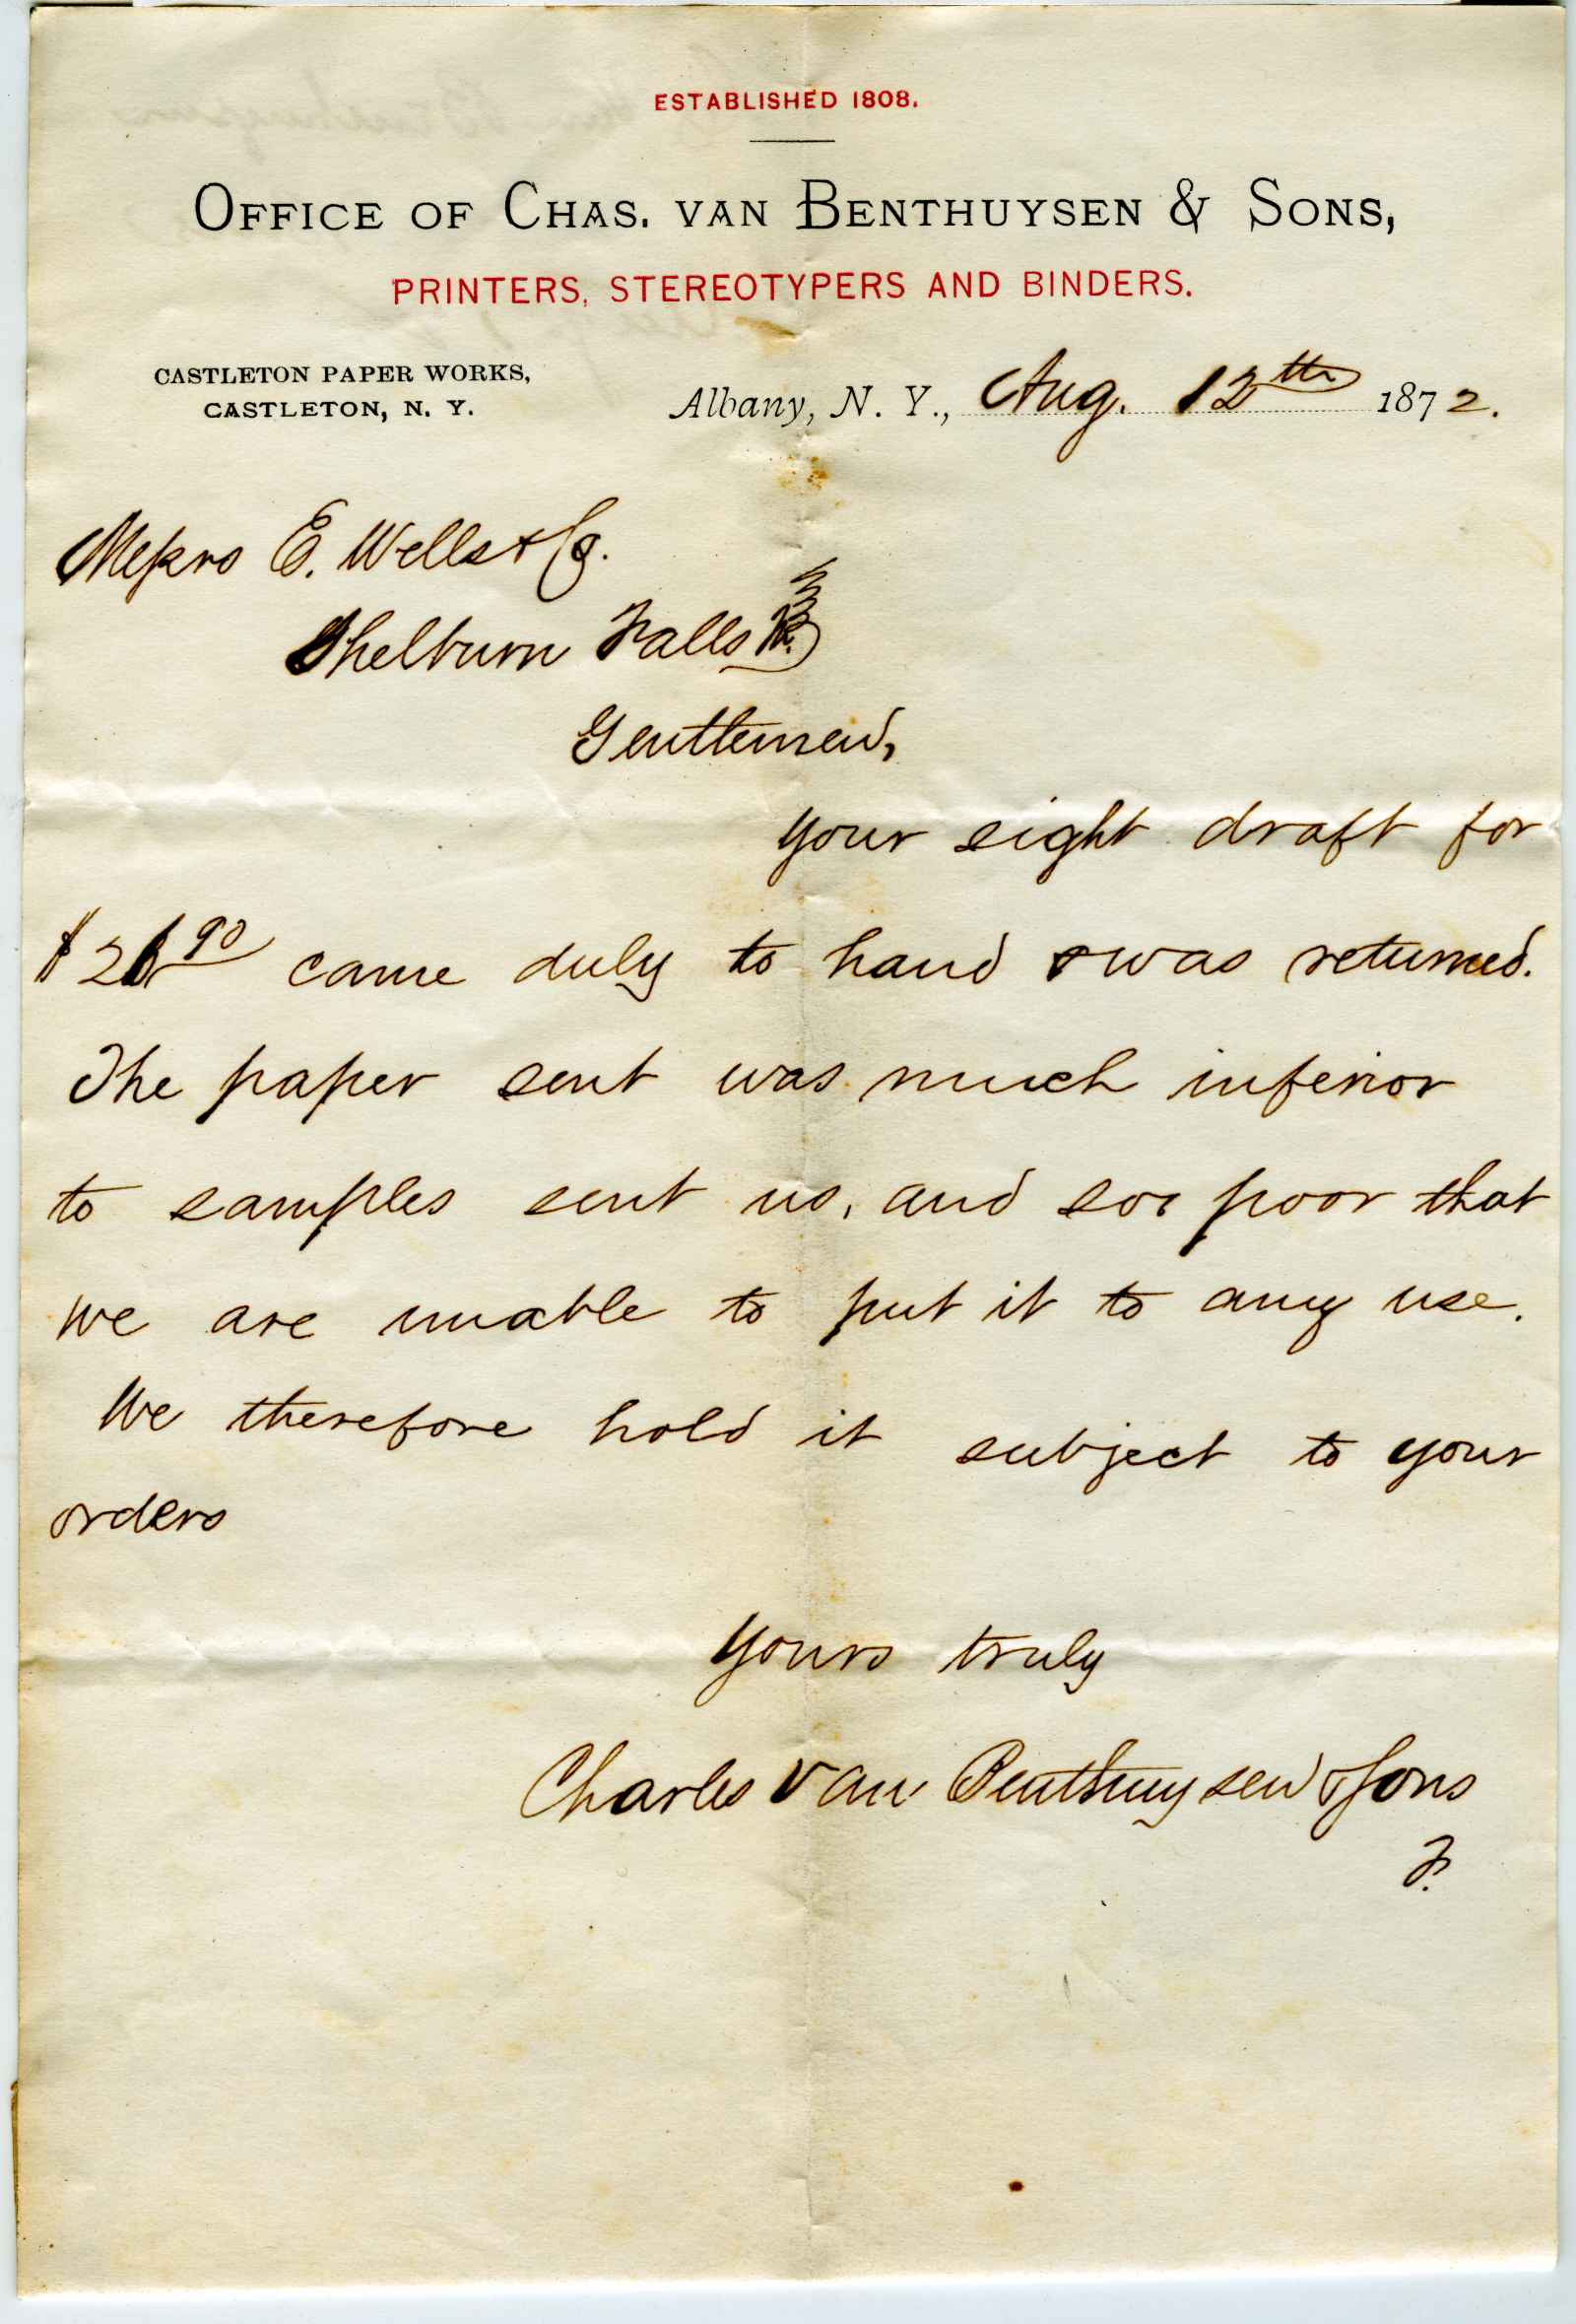 ESTABLISHED 1808.
OFFICE OF CHAS. VAN BENTHUYSEN & SONS,
PRINTERS, STEREOTYPERS AND BINDERS.
CASTLETON PAPER WORKS,
CASTLETON, N. Y.
Albany, N. Y., Aug. 12th 1872.
Messrs E. Wells & Co.
Shelburn Falls
Gentlemen,
Your sight draft for
came duly to hand & was returned.
The paper sent was much inferior
to samples sent us, and so poor that
we are unable to put it to any use.
We therefore hold it subject to your
orders
Yours truly
Charles Van Benthuysen & Sons
F.